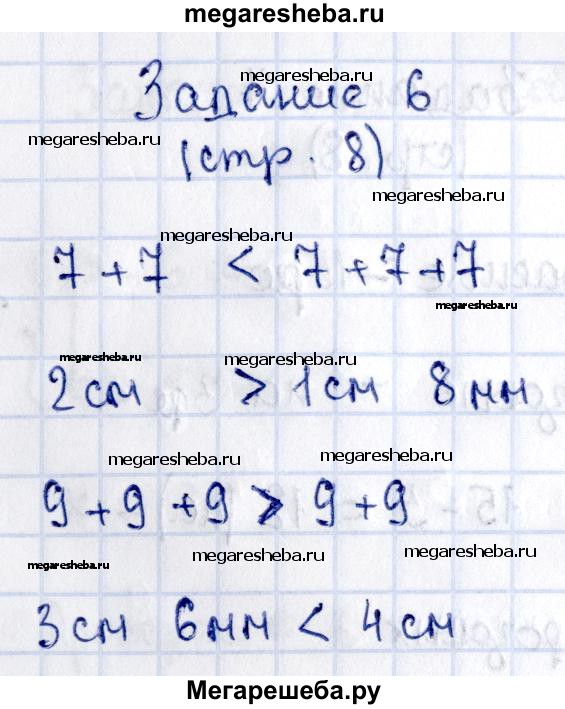 megaresheba.ru
megaresheba.ru
Задание 6
megaresheba.ru
(стр. 8)
megaresheba.ru
megaresheba.ru
7 + 7 < 7 + 7 + 7
megaresheba.ru
megaresheba.ru megaresheba.ru
2 см > 1 см 8 мм
megaresheba.ru megaresheba.ru
9 + 9 + 9 > 9 + 9
megaresheba.ru megaresheba.ru megaresheba.ru
3 см 6 мм < 4 см
Мегарешеба.ру